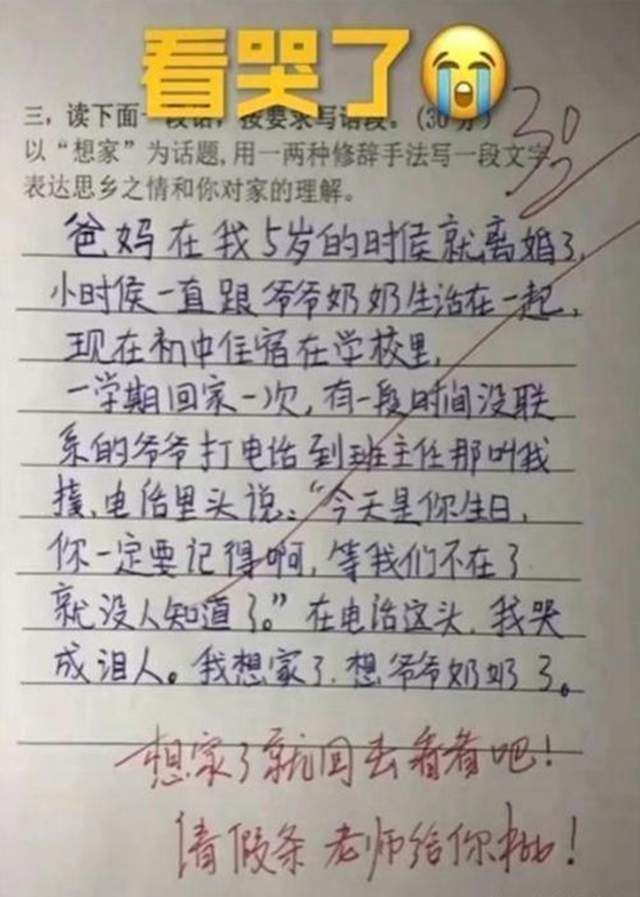 看哭了
三,读下面一段话,按要求写语段。(30分)
30
以“想家”为话题,用一两种修辞手法写一段文字
表达思乡之情和你对家的理解。
爸妈在我5岁的时侯就离婚了,
小时侯一直跟爷爷奶奶生活在一起,
现在初中住宿在学校里,
一学期回家一次,有一段时间没联
系的爷爷打电话到班主任那叫我
接,电话里头说:“今天是你生日,
你一定要记得啊,等我们不在了
就没人知道了。”在电话这头,我哭
成泪人。我想家了,想爷爷奶奶了。
想家了就回去看看吧!
请假条老师给你批!